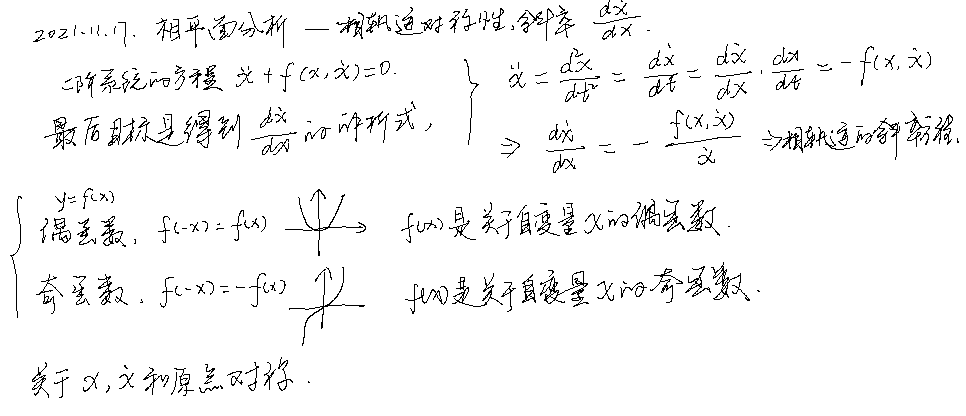 2021.11.17. 相平面分析 — 相轨迹对称性,斜率 dẋ/dx.
二阶系统的方程 ẍ + f(x,ẋ)=0.
最后目标是得到 dẋ/dx 的解析式,
ẍ = d²x/dt² = dẋ/dt = dẋ/dx · dx/dt = -f(x,ẋ)
⇒ dẋ/dx = - f(x,ẋ)/ẋ ⇒相轨迹的斜率方程.
y=f(x)
偶函数, f(-x)=f(x) f(x)是关于自变量x的偶函数.
奇函数, f(-x)=-f(x) f(x)是关于自变量x的奇函数.
关于x,ẋ和原点对称.